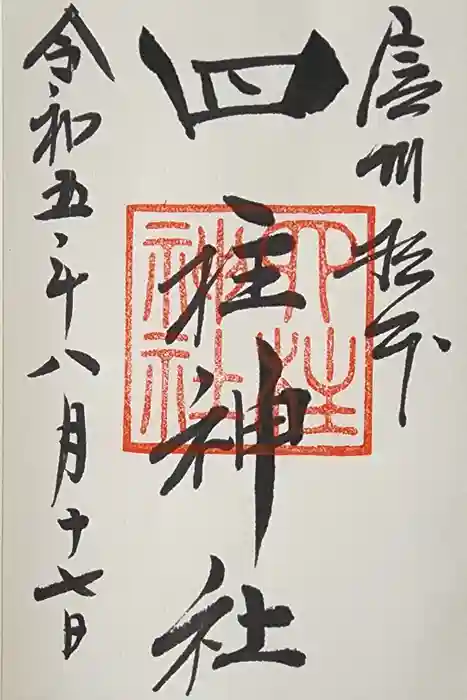 信州松本
四柱神社
四柱神社
令和五年八月十七日